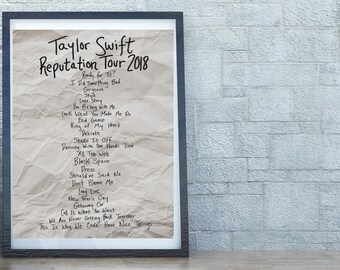 Taylor Swift
Reputation Tour 2018
Ready for It?
I Did Something Bad
Gorgeous
Style
Love Story
You Belong With Me
Look What You Made Me Do
End Game
King of My Heart
Delicate
Shake It Off
Dancing With Our Hands Tied
All Too Well
Blank Space
Dress
Should've Said No
Don't Blame Me
Long Live
New Year's Day
Getaway Car
Call It What You Want
We Are Never Getting Back Together
This Is Why We Can't Have Nice Things